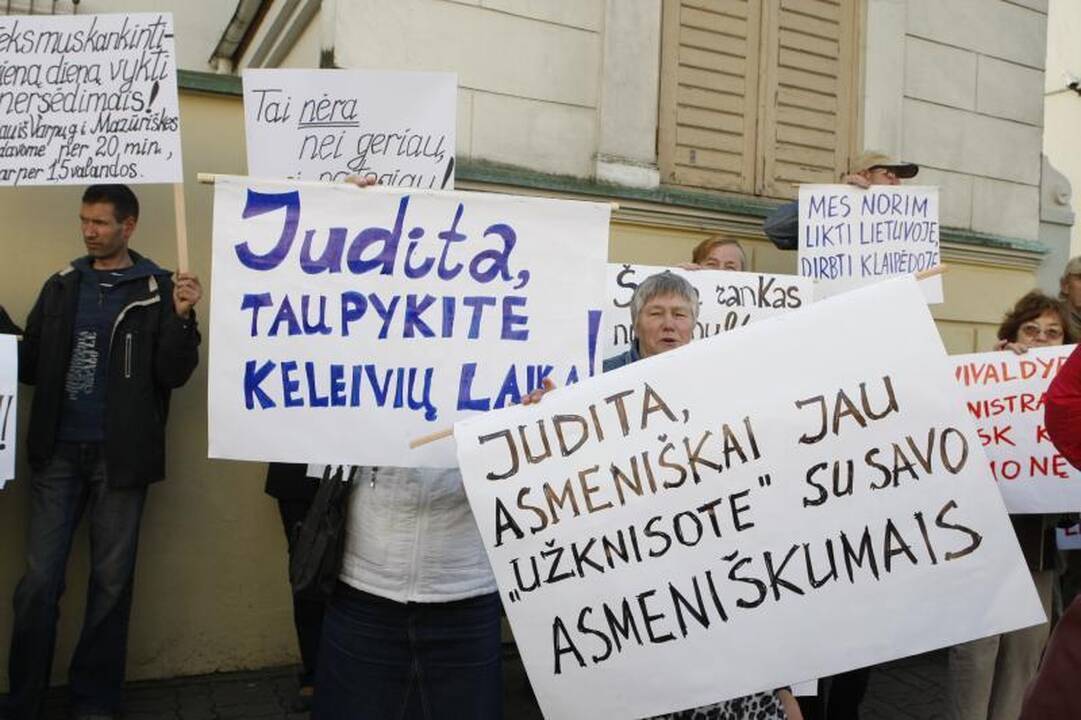 eksmuskankinti-
ieną dieną vykti
persėdimais!
Varpų g. ir Mažūriškes
per 20 min.,
ar per 1,5 valandos.
Tai nėra
nei geriau,
Judita,
TAUPYKITE
KELEIVIŲ LAIKĄ!
rankas
MES NORIM
LIKTI LIETUVOJE,
DIRBTI KLAIPĖDOJE
JUDITA,
ASMENIŠKAI JAU
„UŽKNISOTE" SU SAVO
ASMENIŠKUMAIS
VIVALDY
NISTRA
SK K
O NĖ